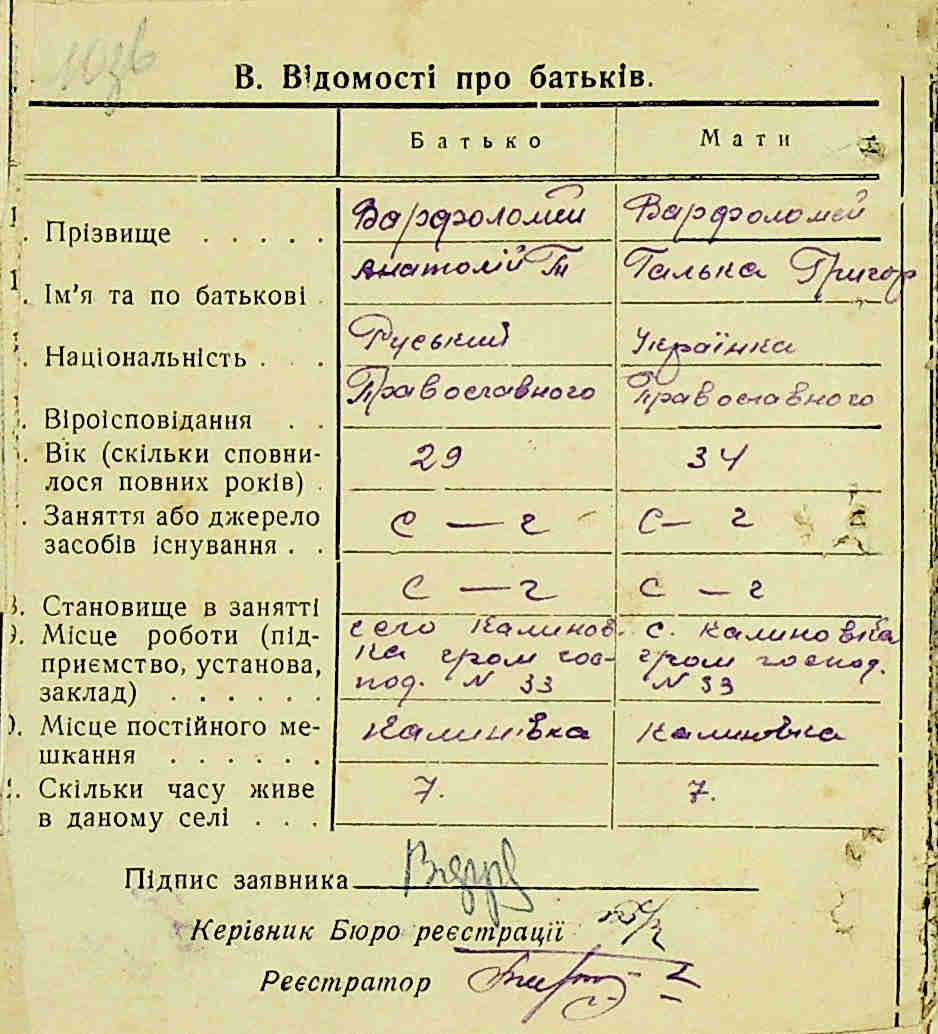 В. Відомості про батьків.
Батько Мати
Прізвище . . . . . Варфоломій Варфоломей
Ім'я та по батькові . Анатолій Галька Григор
Національність . . . Руський Українка
Віроісповідання . . Православного Православного
Вік (скільки сповни-
лося повних років) . 29 34
Заняття або джерело
засобів існування . . с — г с — г
Становище в занятті с — г с — г
Місце роботи (під- село Калинов с. Калиновка
приємство, установа, ка гром гос- гром господ.
заклад) . . . . . . под. N 33 N 33
Місце постійного ме-
шкання . . . . . . Калинівка Калиновка
Скільки часу живе
в даному селі . . . 7. 7.
Підпис заявника
Керівник Бюро реєстрації
Реєстратор